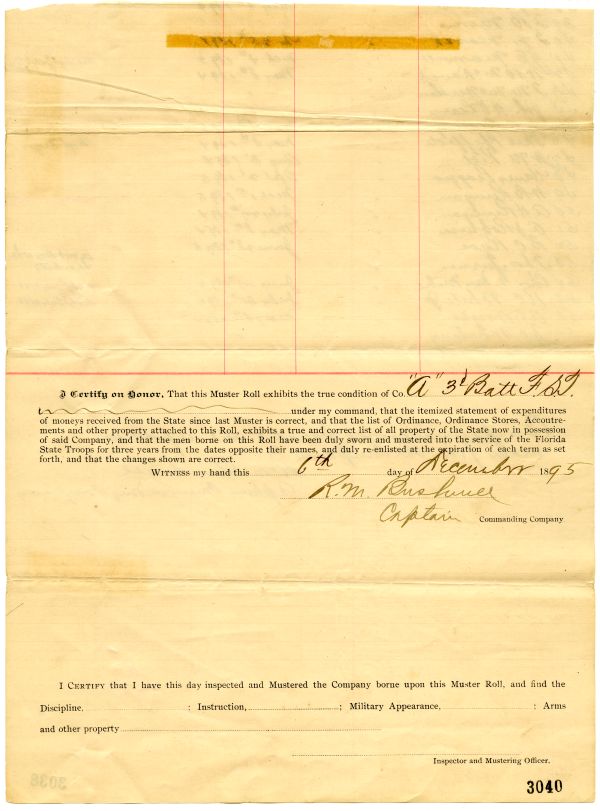 I Certify on Honor, That this Muster Roll exhibits the true condition of Co. "A" 3d Batt F. S. T.
under my command, that the itemized statement of expenditures
of moneys received from the State since last Muster is correct, and that the list of Ordinance, Ordinance Stores, Accoutre-
ments and other property attached to this Roll, exhibits a true and correct list of all property of the State now in possession
of said Company, and that the men borne on this Roll have been duly sworn and mustered into the service of the Florida
State Troops for three years from the dates opposite their names, and duly re-enlisted at the expiration of each term as set
forth, and that the changes shown are correct.
WITNESS my hand this 6th day of December 1895
R. M. Bushnell
Captain Commanding Company
I CERTIFY that I have this day inspected and Mustered the Company borne upon this Muster Roll, and find the
Discipline, : Instruction, ; Military Appearance, : Arms
and other property
Inspector and Mustering Officer.
3040